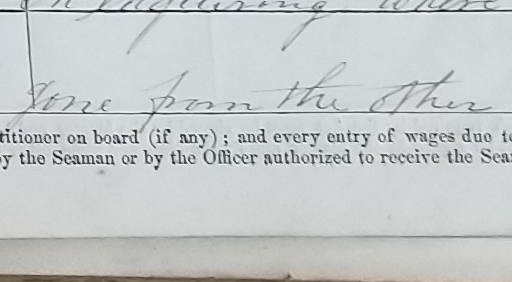 gone from the other
titioner on board (if any); and every entry of wages due to
by the Seaman or by the Officer authorized to receive the Sea